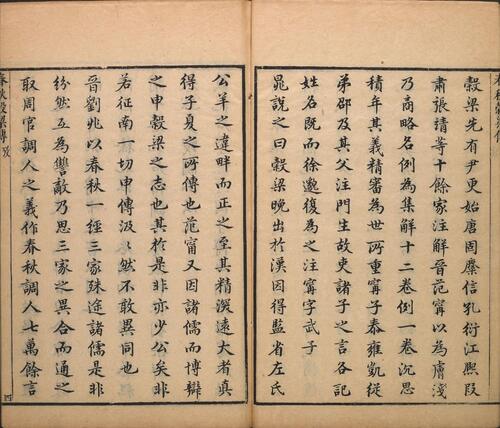 穀梁先有尹更始唐固糜信孔衍江熙段
肅張靖等十餘家注解晉范甯以為膚淺
乃商略名例為集解十二卷例一卷沉思
積年其義精審為世所重甯子泰雍凱從
弟邵及其父注門生故吏諸子之言各記
姓名既而徐邈復為之注甯字武子
晁說之曰穀梁晚出於漢因得監省左氏
公羊之違畔而正之至其精深遠大者真
得子夏之所傳也范甯又因諸儒而博辯
之申穀梁之志也其於是非亦少公矣非
若征南一切申傳汲汲然不敢異同也
晉劉兆以春秋一經三家殊途諸儒是非
紛然互為讐敵乃思三家之異合而通之
取周官調人之義作春秋調人七萬餘言
春秋穀梁傳攷
四